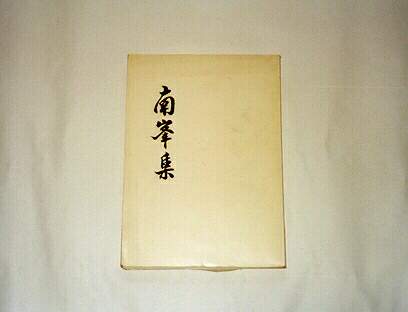 南峯集